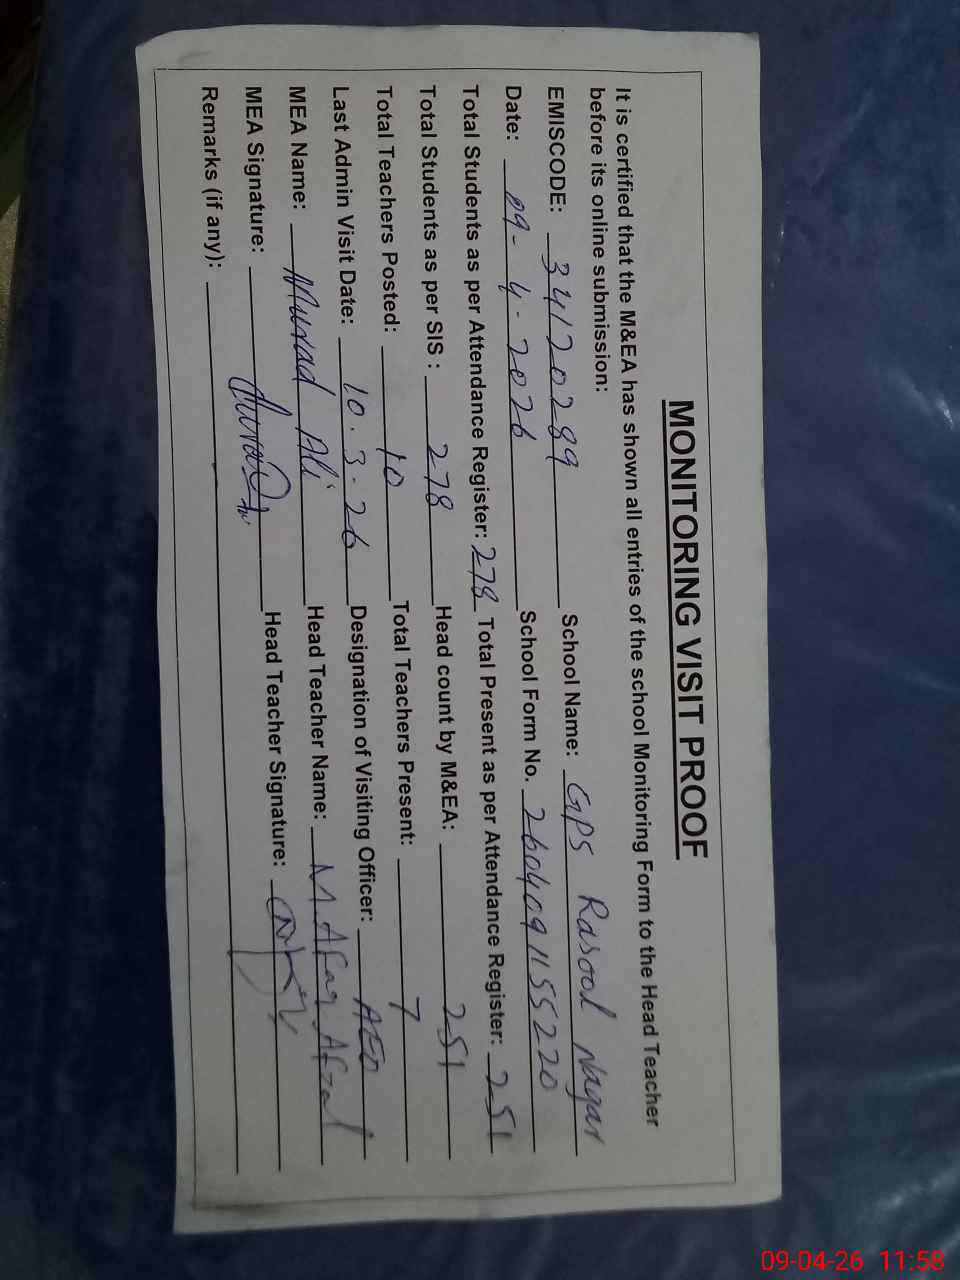 MONITORING VISIT PROOF
It is certified that the M&EA has shown all entries of the school Monitoring Form to the Head Teacher
before its online submission:
EMISCODE: 34120289 School Name: GPS Rasool Nagar
Date: 09-4-2026 School Form No. 2604091155220
Total Students as per Attendance Register: 278 Total Present as per Attendance Register: 251
Total Students as per SIS : 278 Head count by M&EA: 251
Total Teachers Posted: 10 Total Teachers Present: 7
Last Admin Visit Date: 10.3.26 Designation of Visiting Officer: AEO
MEA Name: Murad Ali Head Teacher Name: M. Afaq Afzal
MEA Signature: Head Teacher Signature:
Remarks (if any):
09-04-26 11:58